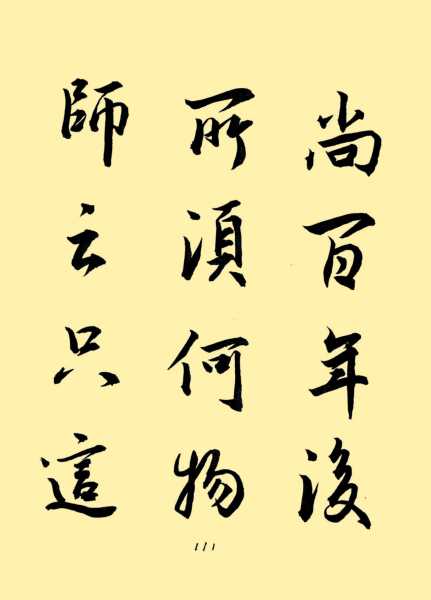 尚百年後
所須何物
師云只這
111